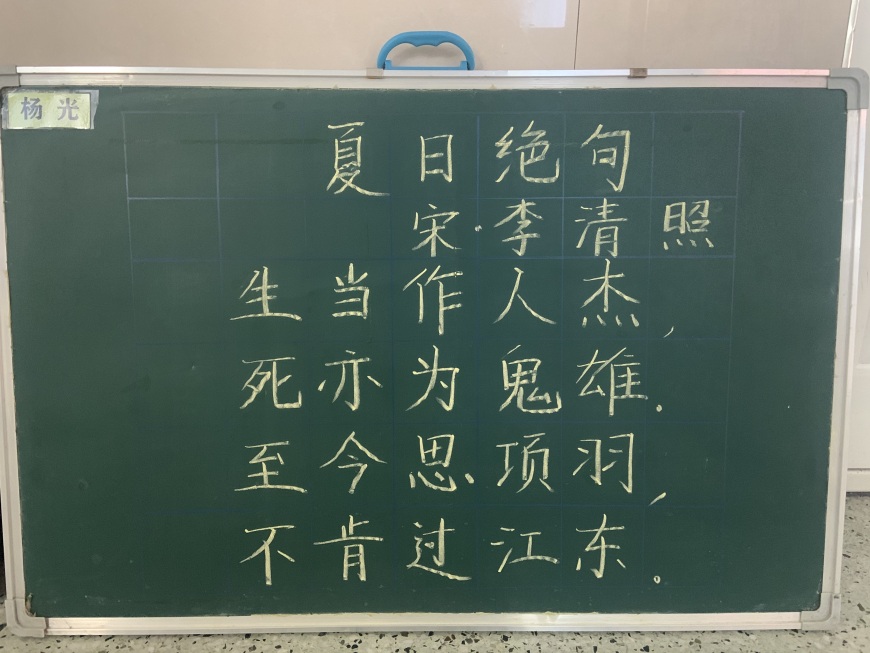 杨光
夏日绝句
宋·李清照
生当作人杰，
死亦为鬼雄。
至今思项羽，
不肯过江东。